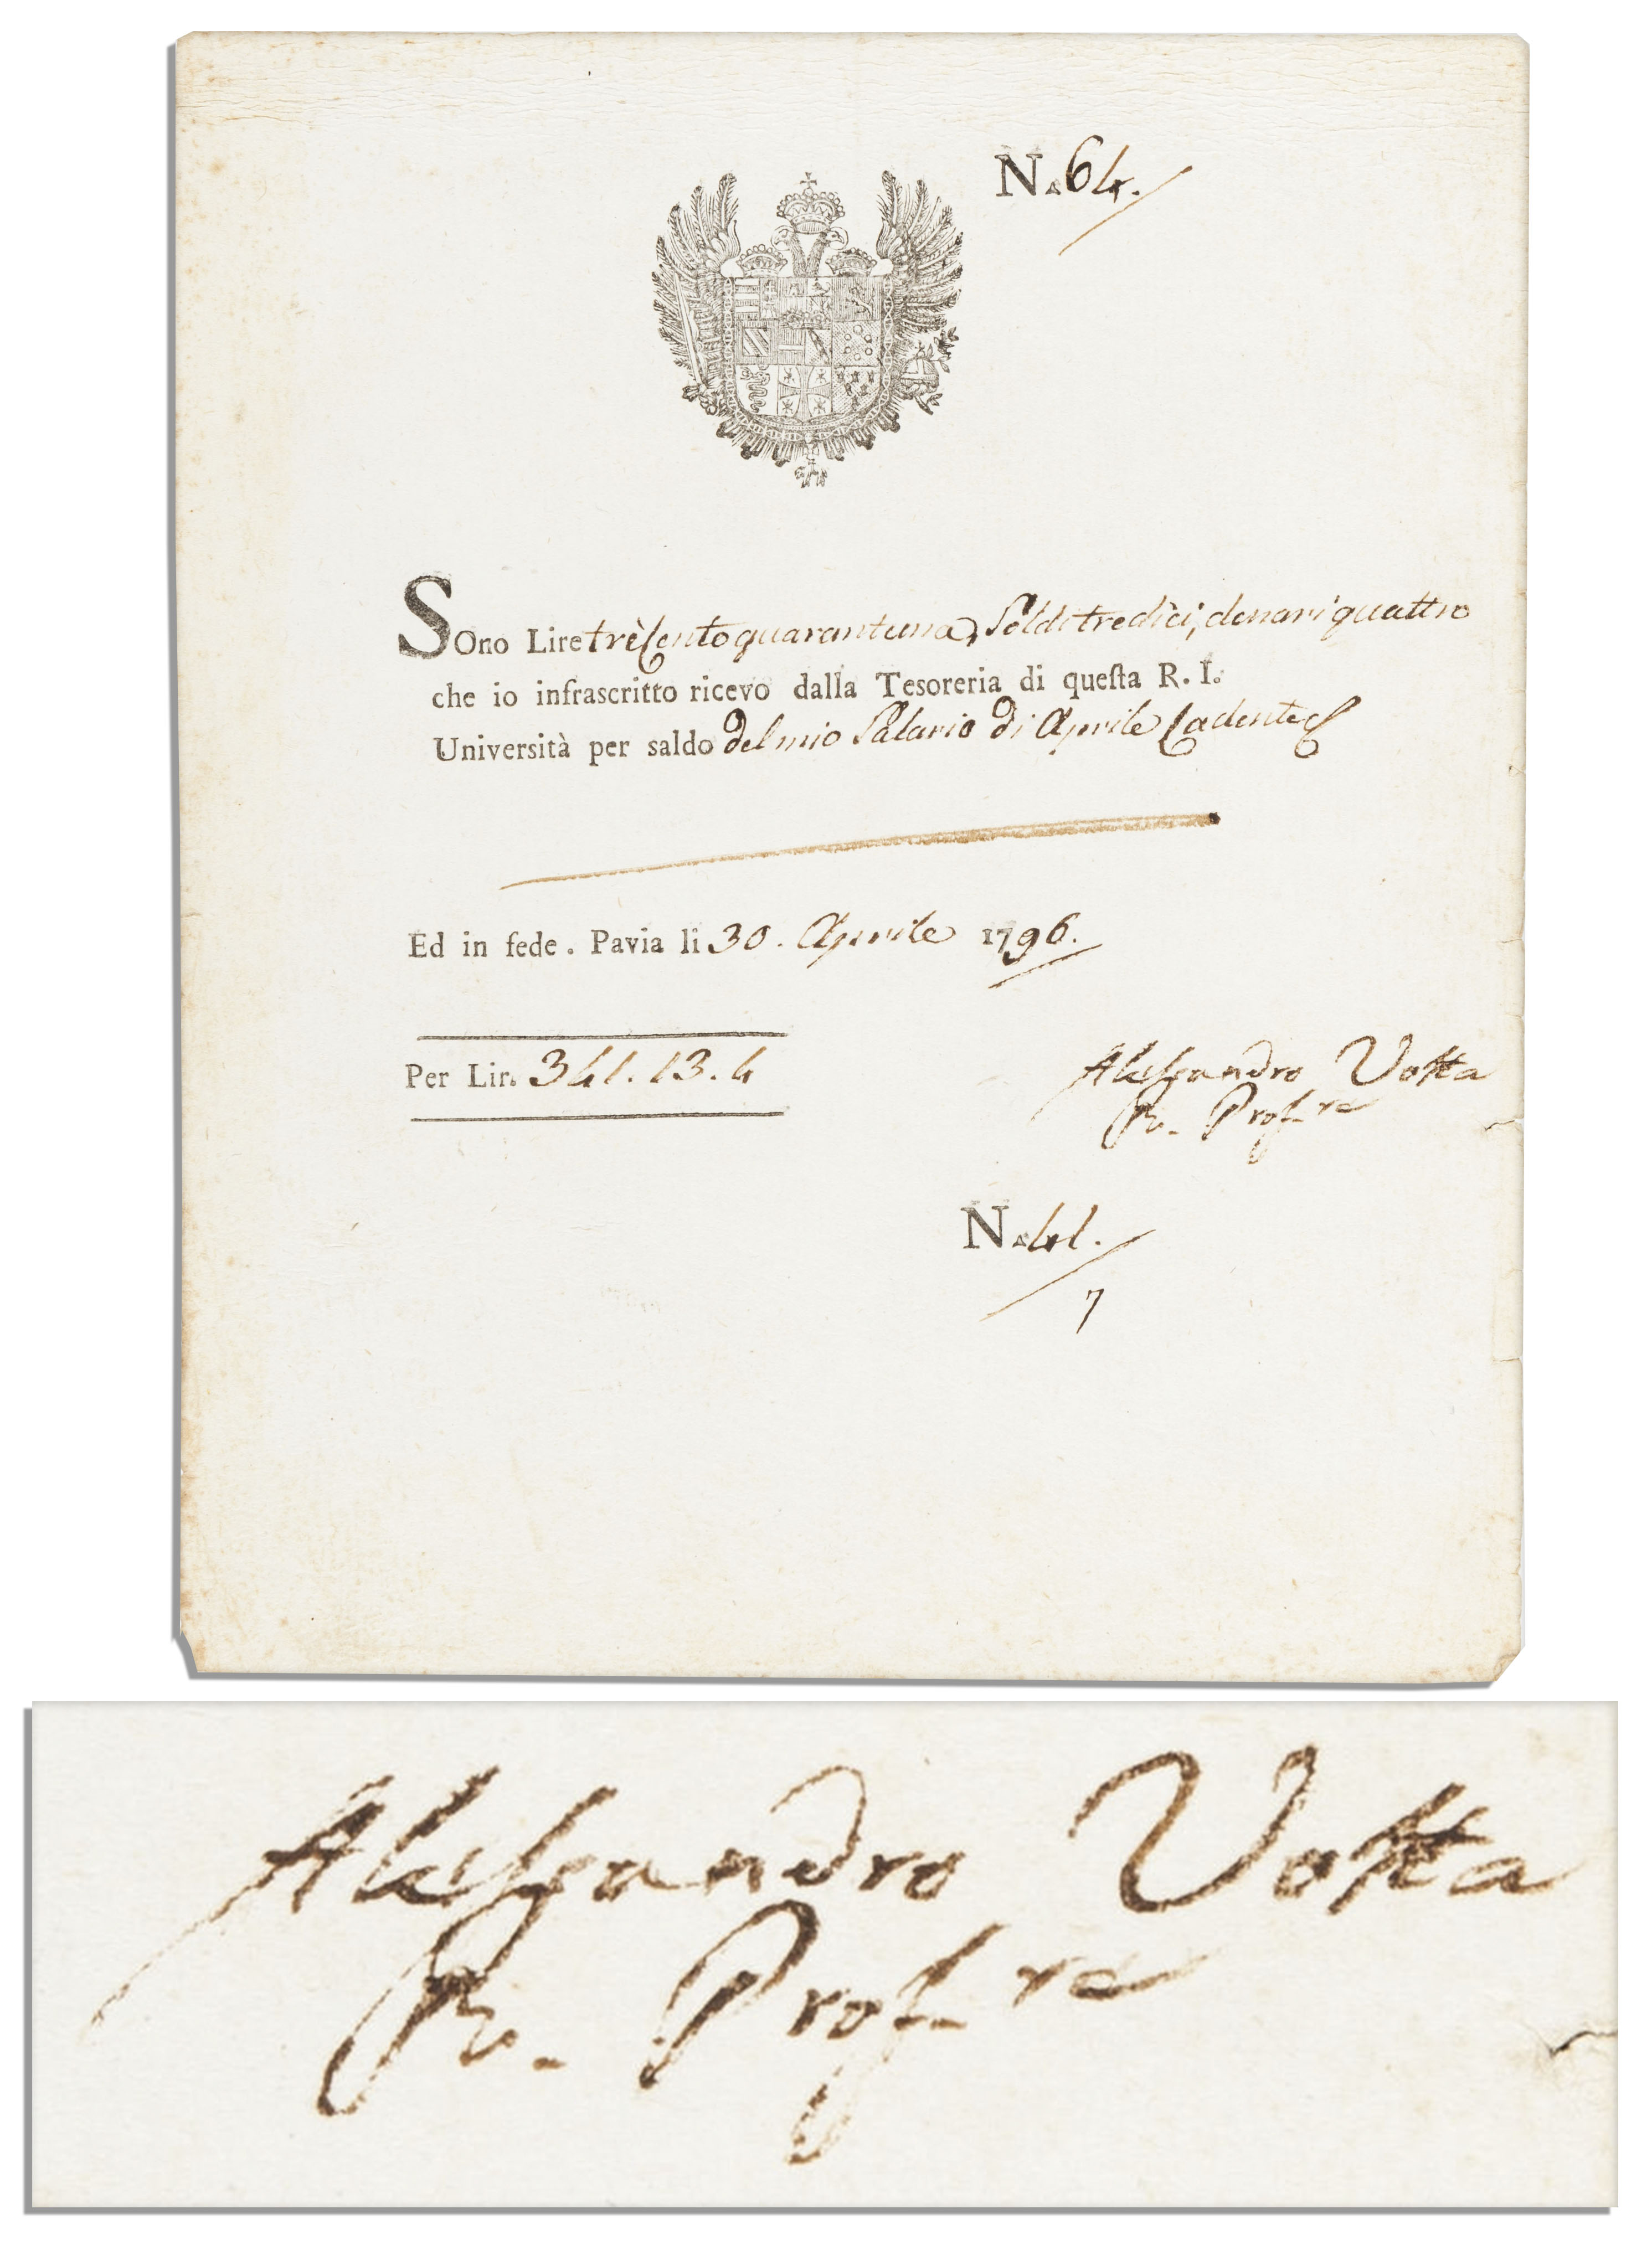 N.° 64.
SOno Lire trècento quarantuna, Soldi tredici, denari quattro
che io infrascritto ricevo dalla Tesoreria di queſta R. I.
Università per saldo del mio Salario di Aprile Cadente
Ed in fede. Pavia li 30. Aprile 1796.
Per Lir. 341.13.4
Alessandro Volta
R. Prof.re
N.° 41.
7
Alessandro Volta
R. Prof.re